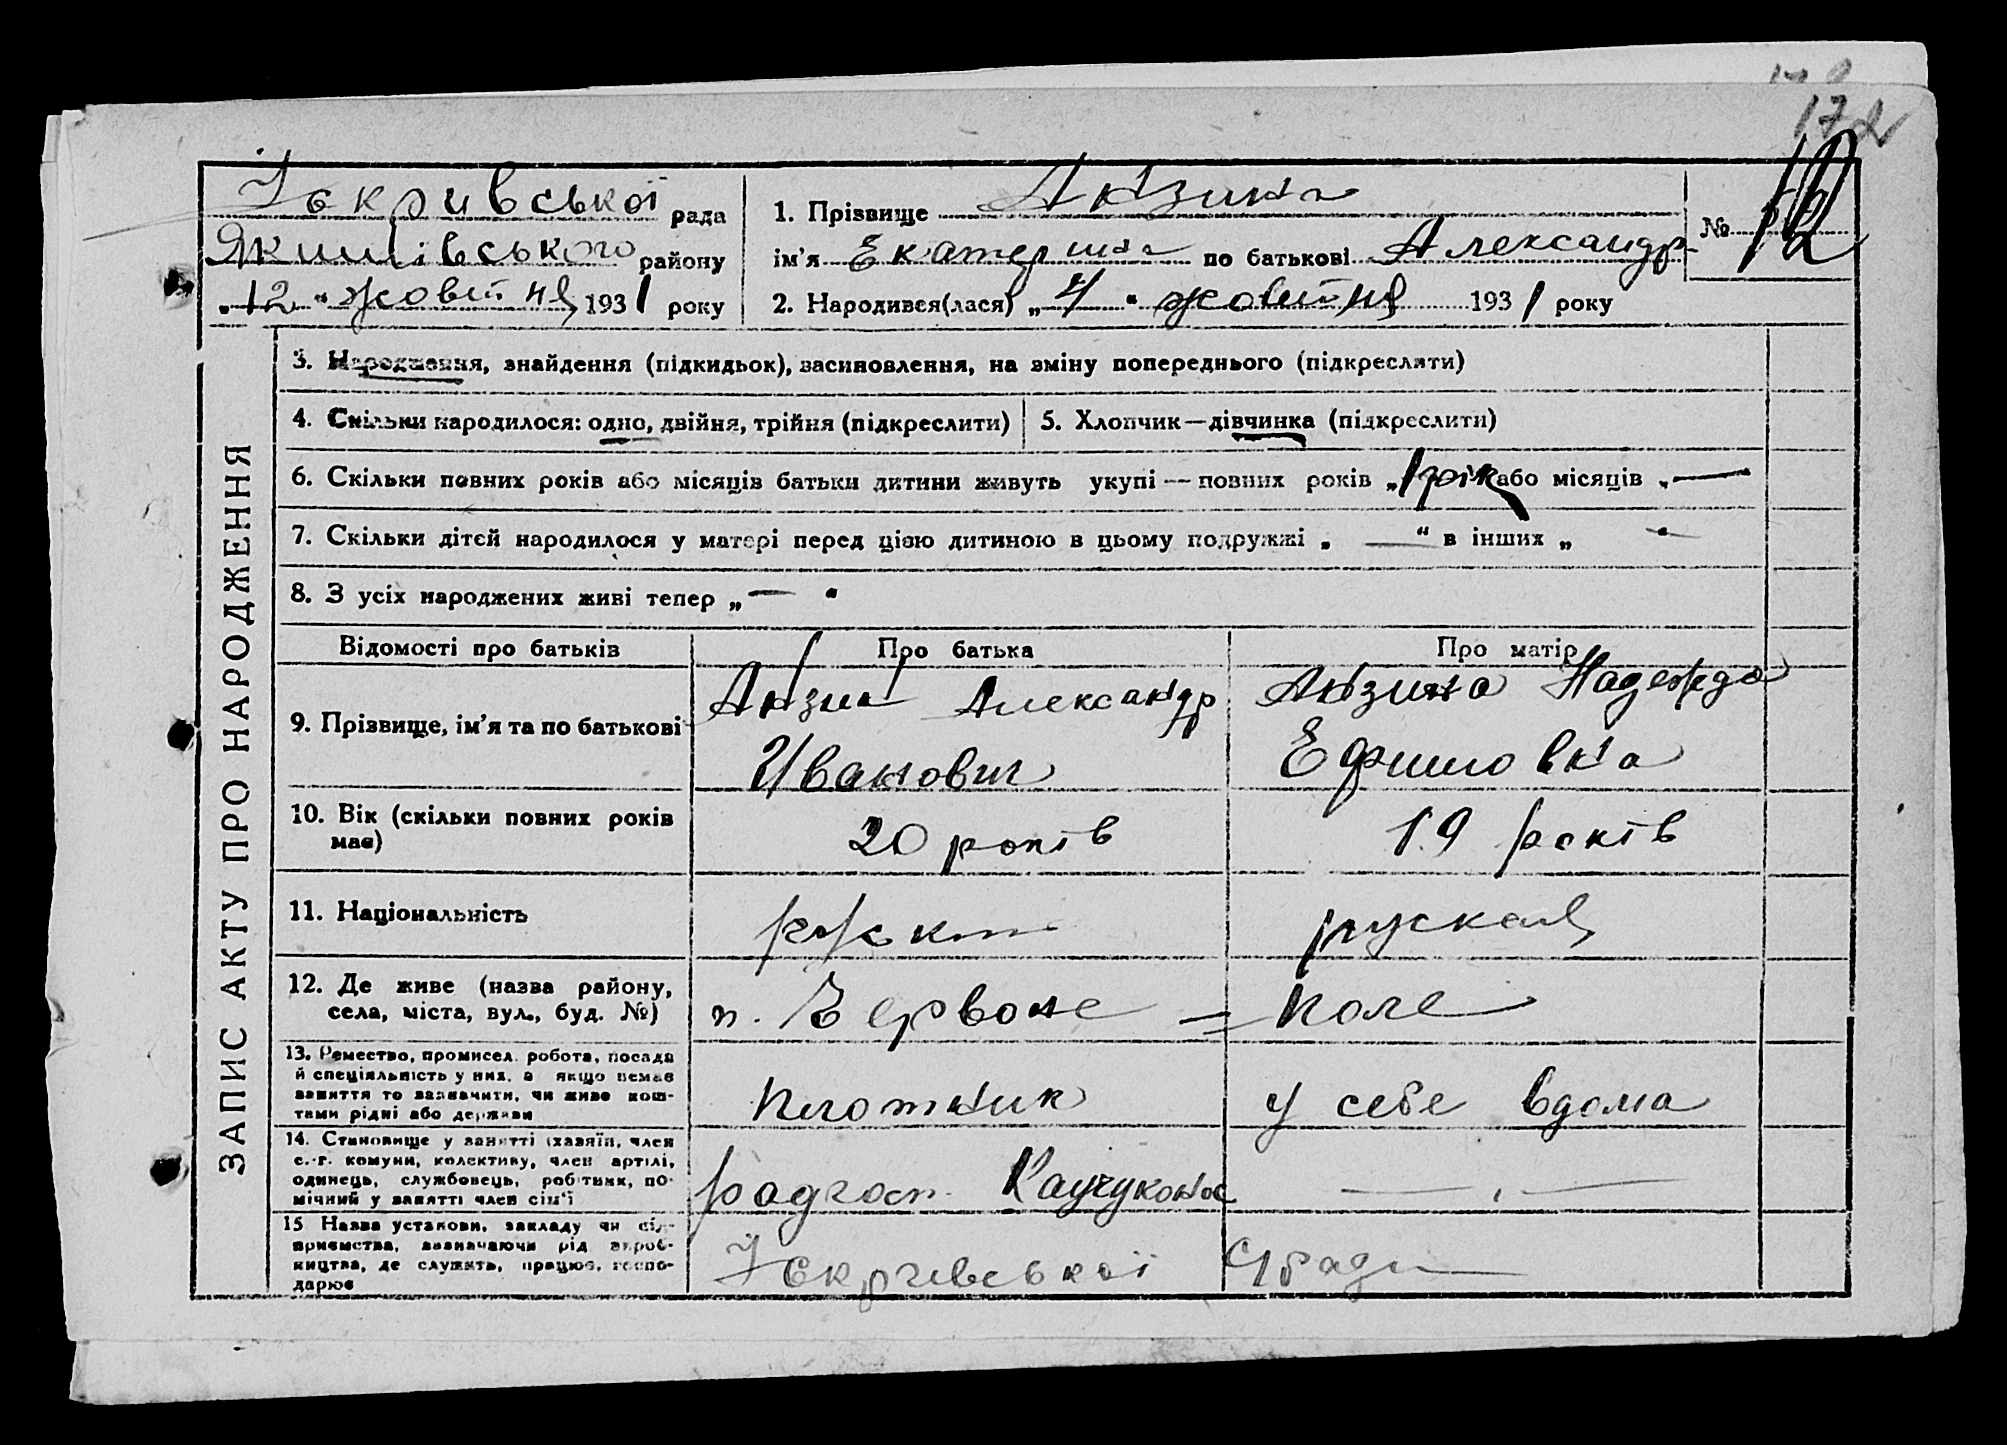 172
Іскрівської рада
Якимівського району
„12“ жовтня 1931 року
1. Прізвище Анзина
ім'я Екатерина по батькові Александр
2. Народився(лася) „4“ жовтня 1931 року
№ 12
ЗАПИС АКТУ ПРО НАРОДЖЕННЯ
3. Народження, знайдення (підкидьок), засиновлення, на зміну попереднього (підкреслити)
4. Скільки народилося: одно, двійня, трійня (підкреслити)
5. Хлопчик—дівчинка (підкреслити)
6. Скільки повних років або місяців батьки дитини живуть укупі — повних років „1 рік або місяців „—
7. Скільки дітей народилося у матері перед цією дитиною в цьому подружжі „ — “ в інших „ — “
8. З усіх народжених живі тепер „ — “
Відомості про батьків
Про батька
Про матір
9. Прізвище, ім'я та по батькові
Анзин Александр
Иванович
Анзина Надежда
Ефимовна
10. Вік (скільки повних років
має)
20 років
19 років
11. Національність
руская
12. Де живе (назва району,
села, міста, вул., буд. №)
п. Червоне = поле
13. Ремество, промисел, робота, посада
й спеціяльність у них, а якщо немає
заняття то зазначити, чи живе кош-
тами рідні або держави
плотник
у себе вдома
14. Становище у занятті (хазяїн, член
с.-г. комуни, колективу, член артілі,
одинець, службовець, робітник, по-
мічний у занятті член сім'ї
радгосп. Каучуконос
— , —
15 Назва установи, закладу чи під-
приємства, зазначаючи рід вироб-
ництва, де служить, працює, госпо-
дарює
Іскрівської с/ради